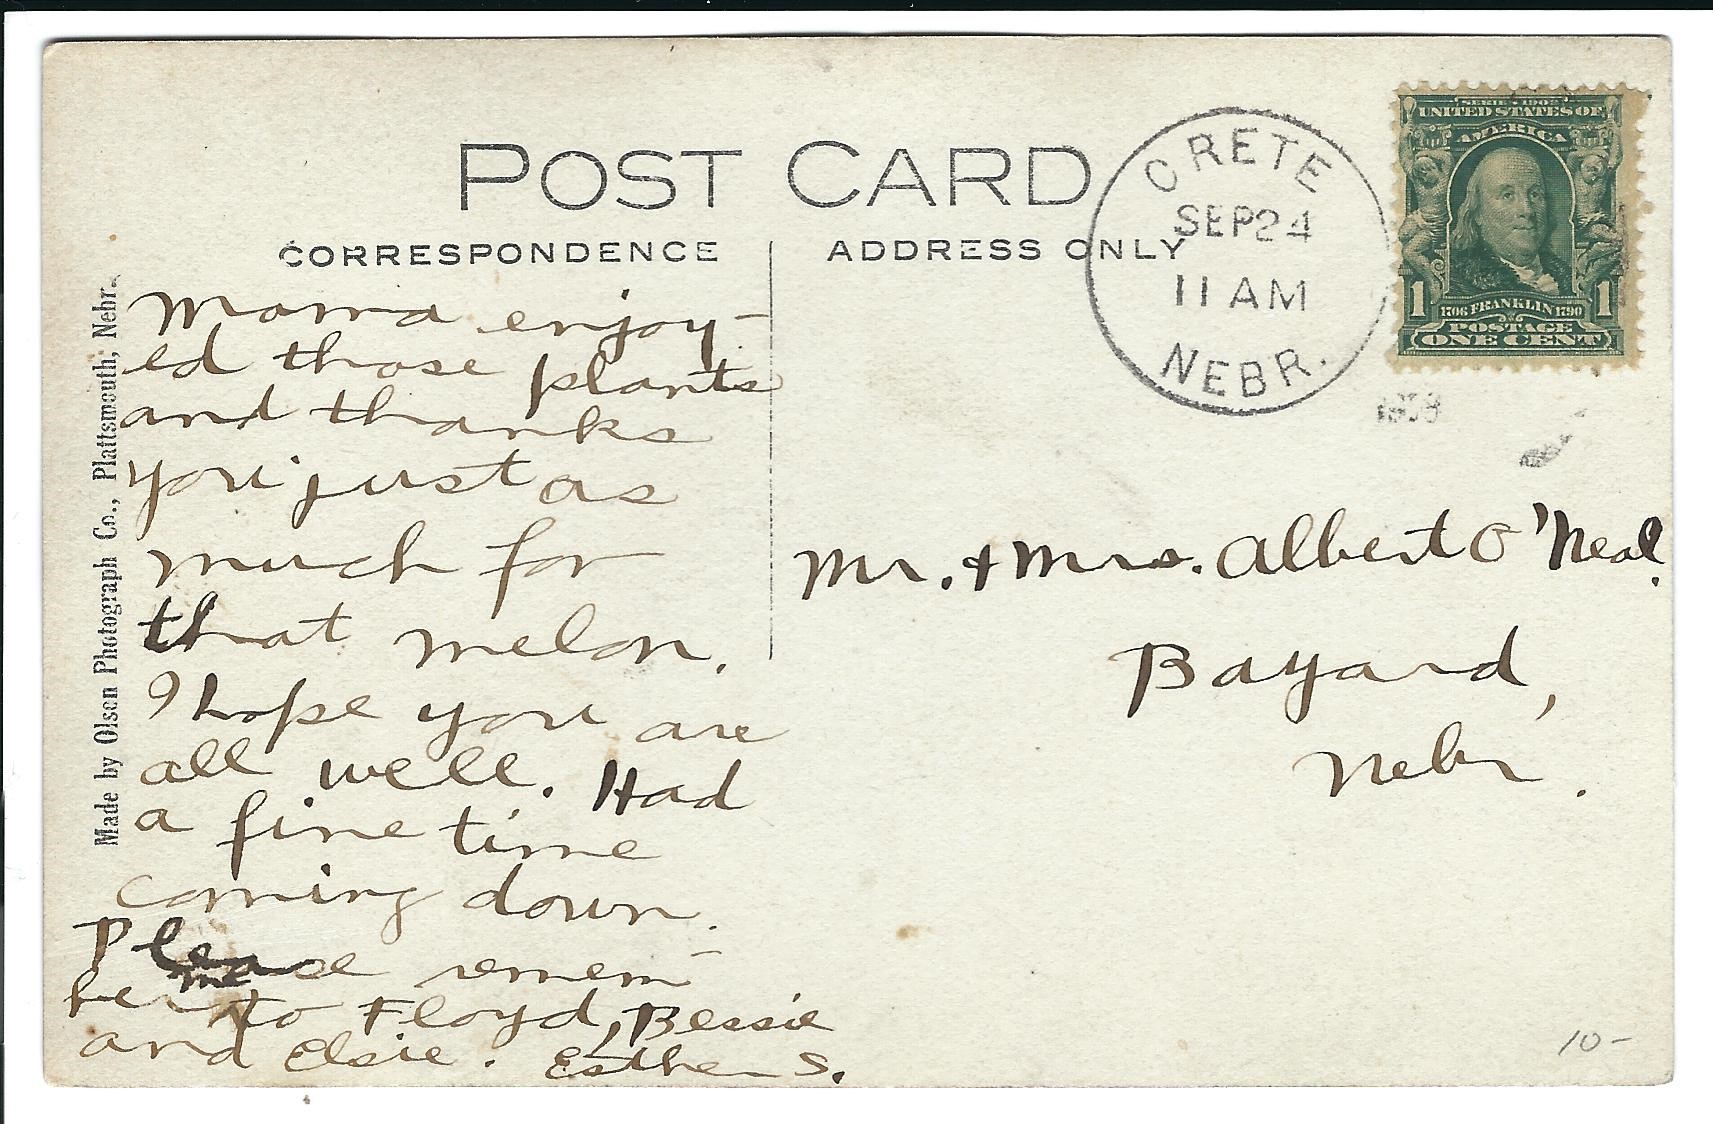 POST CARD
CORRESPONDENCE
ADDRESS ONLY
CRETE
SEP 24
11 AM
NEBR.
SERIES 1902
UNITED STATES OF
AMERICA
1 1706 FRANKLIN 1790 1
POSTAGE
ONE CENT
Made by Olson Photograph Co., Plattsmouth, Nebr.
Mama enjoy-
ed those plants
and thanks
you just as
much for
that melon.
I hope you are
all well. Had
a fine time
coming down.
Please remem-
ber me to Floyd, Bessie
and Elsie. Esther S.
Mr. & Mrs. Albert O'Neal.
Bayard,
Nebr.
10-